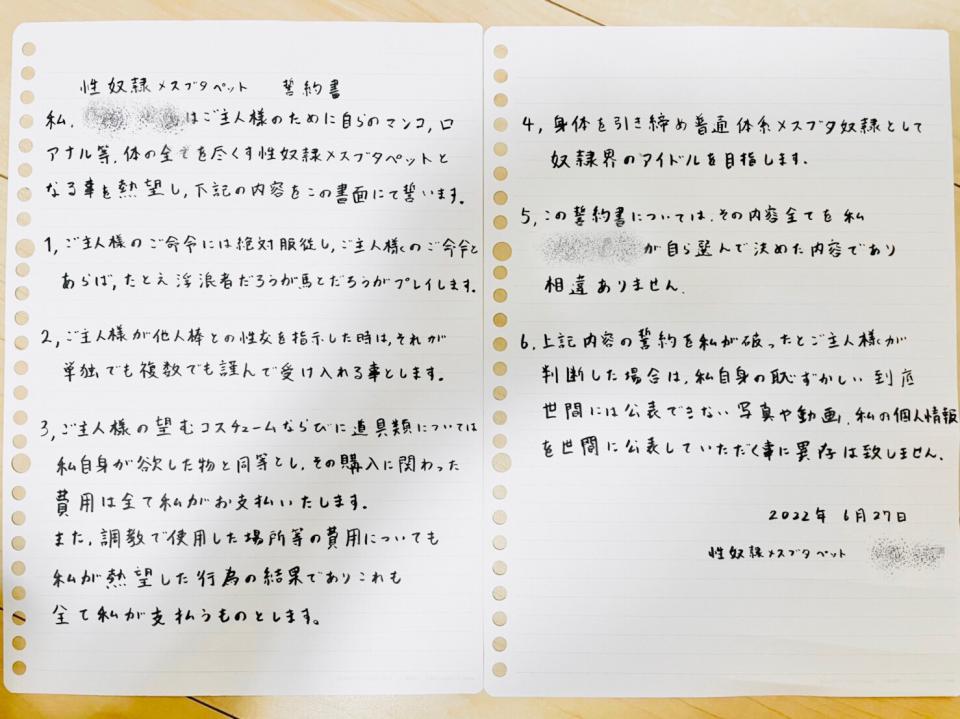 性奴隷メスブタペット 誓約書
私、はご主人様のために自らのマンコ,口
アナル等、体の全てを尽くす性奴隷メスブタペットと
なる事を熱望し、下記の内容をこの書面にて誓います。
1,ご主人様のご命令には絶対服従し、ご主人様のご命令と
あらば、たとえ浮浪者だろうが馬とだろうがプレイします。
2,ご主人様が他人棒との性交を指示した時は、それが
単独でも複数でも謹んで受け入れる事とします。
3,ご主人様の望むコスチュームならびに道具類については
私自身が欲した物と同等とし、その購入に関わった
費用は全て私がお支払いたします。
また、調教で使用した場所等の費用についても
私が熱望した行為の結果でありこれも
全て私が支払うものとします。
4,身体を引き締め普通体系メスブタ奴隷として
奴隷界のアイドルを目指します.
5,この誓約書については、その内容全てを私
が自ら選んで決めた内容であり
相違ありません.
6.上記内容の誓約を私が破ったとご主人様が
判断した場合は、私自身の恥ずかしい到底
世間には公表できない写真や動画、私の個人情報
を世間に公表していただく事に異存は致しません.
2022年 6月27日
性奴隷メスブタペット